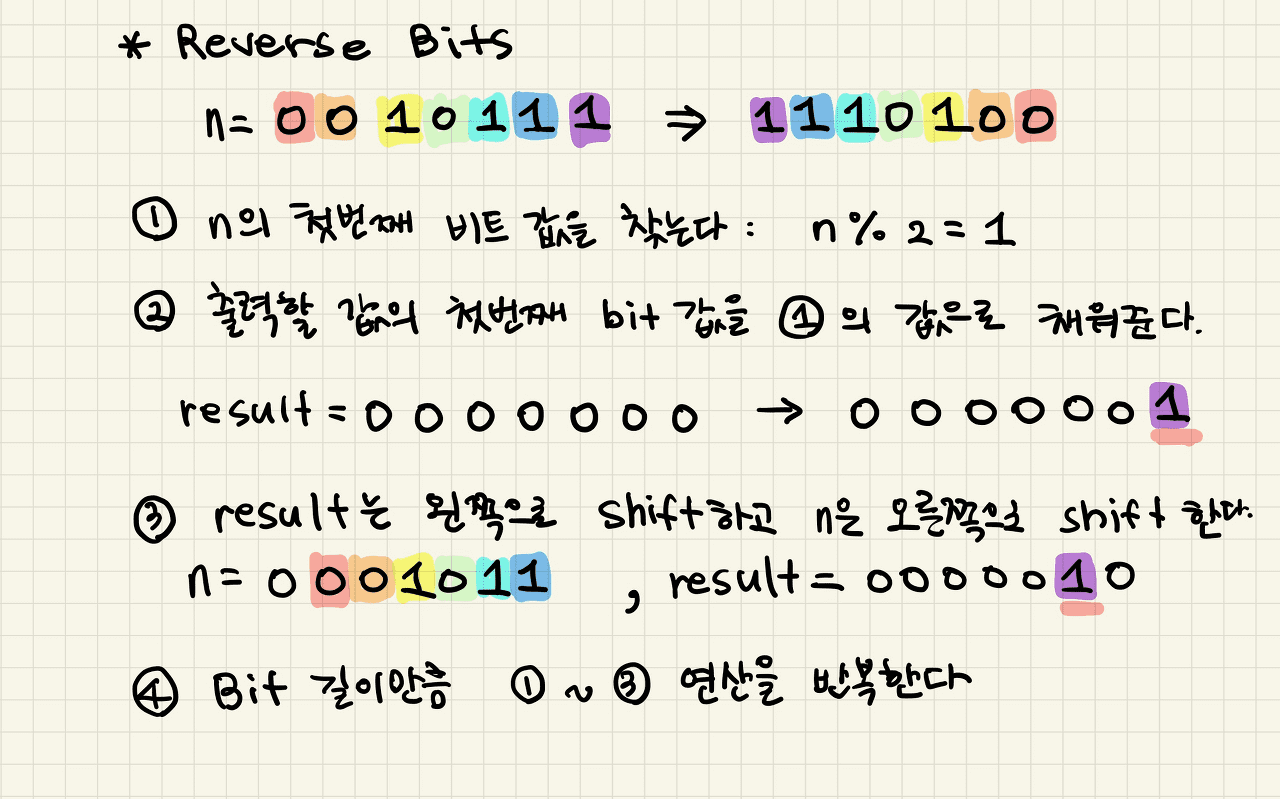 * Reverse Bits
n= 0 0 1 0 1 1 1 ⇒ 1 1 1 0 1 0 0
① n의 첫번째 비트 값을 찾는다 : n % 2 = 1
② 출력할 값의 첫번째 bit 값을 ①의 값으로 채워준다.
result = 0 0 0 0 0 0 0 → 0 0 0 0 0 0 1
③ result는 왼쪽으로 shift하고 n은 오른쪽으로 shift 한다.
n= 0 0 0 1 0 1 1 , result = 0 0 0 0 0 1 0
④ Bit 길이만큼 ① ~ ③ 연산을 반복한다